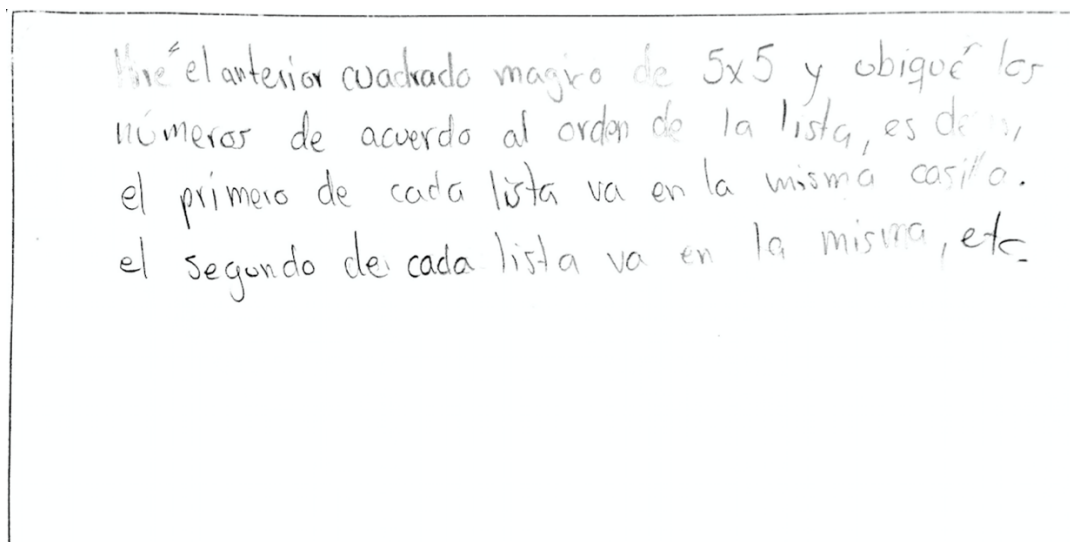 Miré el anterior cuadrado magico de 5x5 y ubiqué los
números de acuerdo al orden de la lista, es decir,
el primero de cada lista va en la misma casilla.
el segundo de cada lista va en la misma, etc.